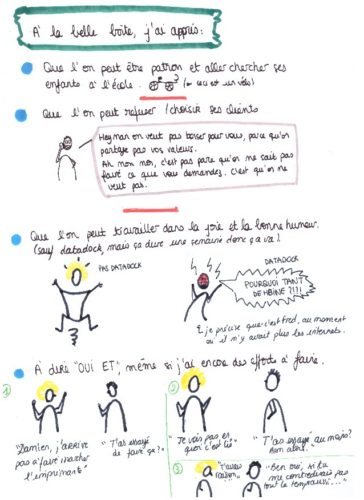 A la belle boîte, j'ai appris:
Que l'on peut être patron et aller chercher ses
enfants à l'école. (← ceci est un vélo)
Que l'on peut refuser / choisir ses clients
Hey man on veut pas bosser pour vous, parce qu'on
partage pas vos valeurs.
Ah mon mon, c'est pas parce qu'on ne sait pas
faire ce que vous demandez. C'est qu'on ne
veut pas.
Que l'on peut travailler dans la joie et la bonne humeur.
(sauf datadock, mais ça dure une semaine donc ça va)
PAS DATADOCK
DATADOCK
POURQUOI TANT
DE HAINE ?!!!
Et je précise que c'est Fred, au moment
où il n'y avait plus les internets.
À dire "OUI ET", même si j'ai encore des efforts à faire.
1
"Damien, j'arrive
pas à faire marcher
l'imprimante"
"T'as essayé
de faire ça?"
2
"Je vois pas en
quoi c'est lié"
"T'as essayé au moins?
Non alors."
3
"T'avais
raison"
"Ben oui, si tu
me contredisais pas
tout le temps aussi..."